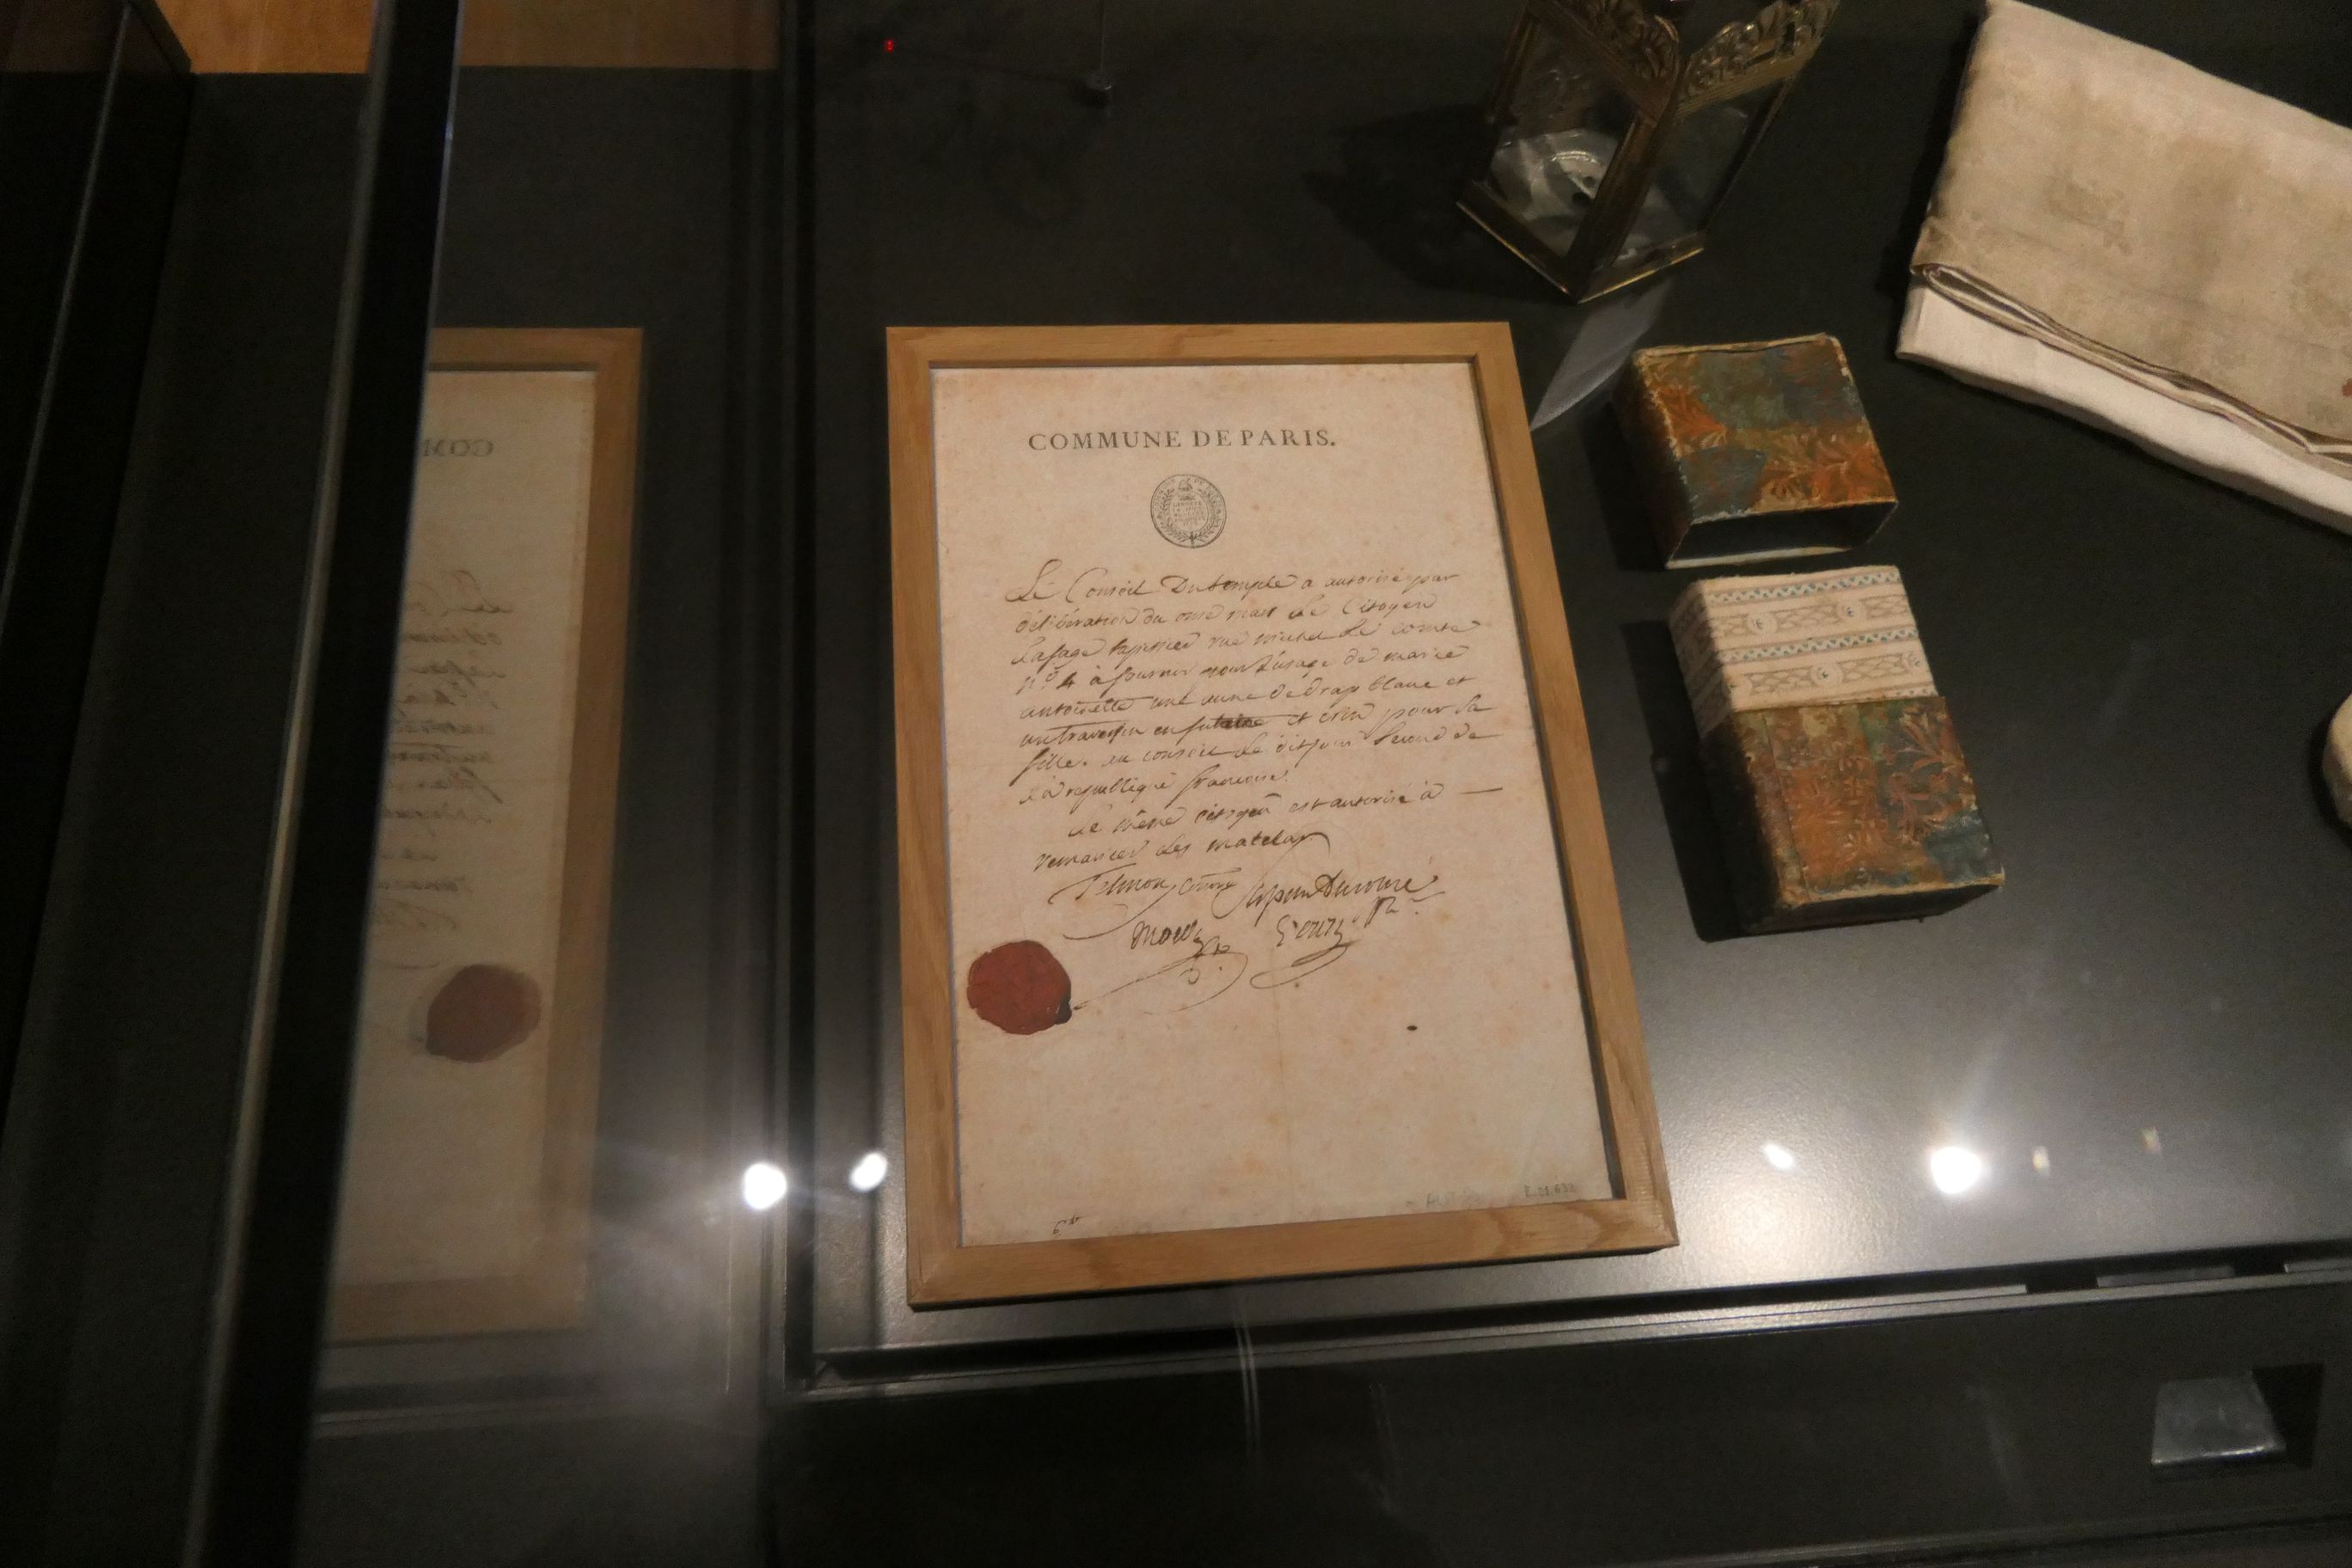 COMMUNE DE PARIS.
Le Conseil Du temple a autorisé par
délibération du onze mars le Citoyen
Lafage tapissier rue michel le comte
n.º 4 à fournir pour l'usage de marie
antoinette une aune de drap blanc et
un traversin en futaine et crin pour sa
fille. au conseil le dit jour Second de
la republique francoise.
Le même citoyen est autorisé à
remanier les matelas